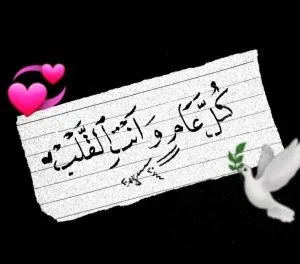 كُلّ عَامٍ وَ أنتَ القَلْب